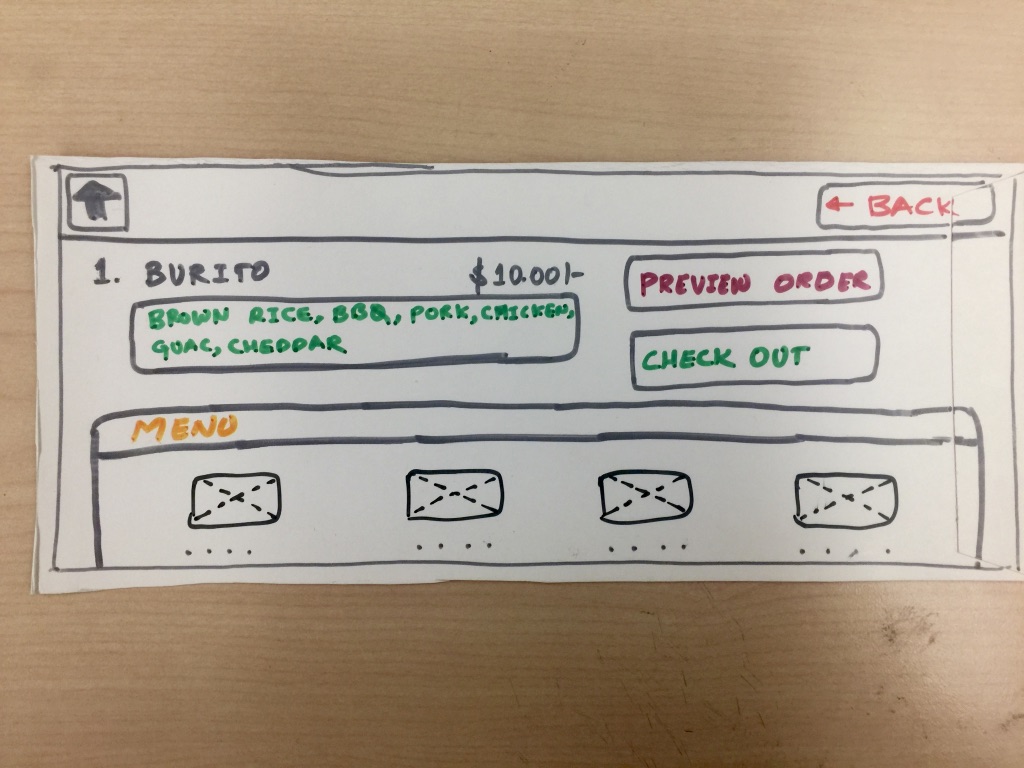 ← BACK
1. BURITO $10.00/-
BROWN RICE, BBQ, PORK, CHICKEN,
GUAC, CHEDDAR
PREVIEW ORDER
CHECK OUT
MENU